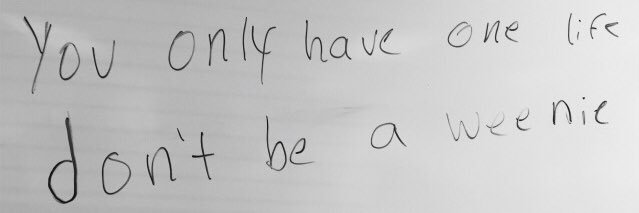 You only have one life
don't be a weenie